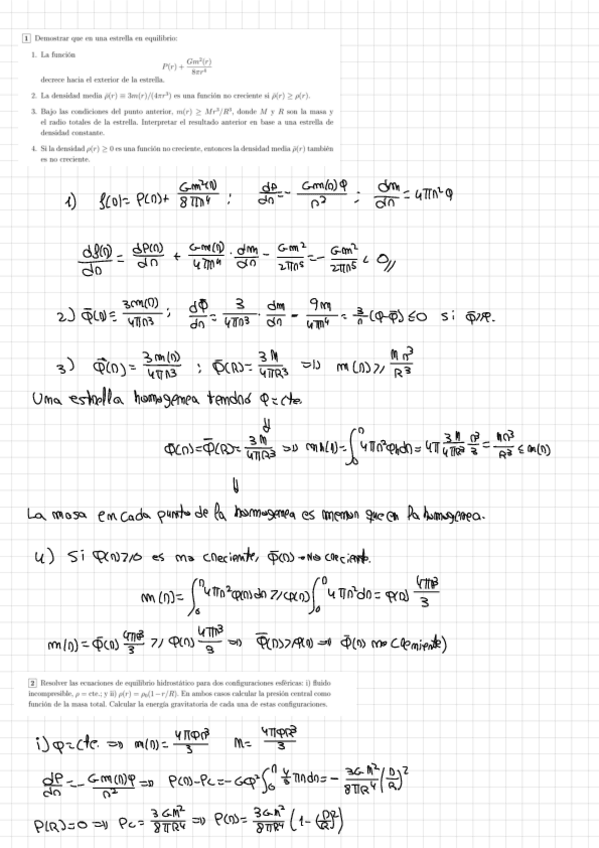 1 Demostrar que en una estrella en equilibrio:
1. La función
P(r) + Gm²(r)/8πr⁴
decrece hacia el exterior de la estrella.
2. La densidad media ρ̄(r) ≡ 3m(r)/(4πr³) es una función no creciente si ρ̄(r) ≥ ρ(r).
3. Bajo las condiciones del punto anterior, m(r) ≥ Mr³/R³, donde M y R son la masa y
el radio totales de la estrella. Interpretar el resultado anterior en base a una estrella de
densidad constante.
4. Si la densidad ρ(r) ≥ 0 es una función no creciente, entonces la densidad media ρ̄(r) también
es no creciente.
1) f(r) = P(r) + Gm²(r)/8πr⁴ ; dP/dr = - Gm(r)ρ/r² ; dm/dr = 4πr²ρ
df(r)/dr = dP(r)/dr + Gm(r)/4πr⁴ · dm/dr - Gm²/2πr⁵ = - Gm²/2πr⁵ < 0//
2) ρ̄(r) = 3m(r)/4πr³ ; dρ̄/dr = 3/4πr³ · dm/dr - 9m/4πr⁴ = 3/r (ρ-ρ̄) ≤ 0 si ρ̄ ≥ ρ.
3) ρ̄(r) = 3m(r)/4πr³ ; ρ̄(R) = 3M/4πR³ => m(r) ≥ Mr³/R³
Una estrella homogenea tendrá ρ = cte.
⇓
ρ̄(r) = ρ̄(R) = 3M/4πR³ => mh(r) = ∫₀ʳ 4πr²ρh dr = 4π 3M/4πR³ r³/3 = Mr³/R³ ≤ m(r)
⇓
La masa en cada punto de la homogenea es menor que en la homogenea.
4) Si ρ(r) ≥ 0 es no creciente, ρ̄(r) → No creciente.
m(r) = ∫₀ʳ 4πr²ρ(r)dr ≥ ρ(r) ∫₀ʳ 4πr²dr = ρ(r) 4πr³/3
m(r) = ρ̄(r) 4πr³/3 ≥ ρ(r) 4πr³/3 => ρ̄(r) ≥ ρ(r) => ρ̄(r) no creciente)
2 Resolver las ecuaciones de equilibrio hidrostático para dos configuraciones esféricas: i) fluido
incompresible, ρ = cte.; y ii) ρ(r) = ρ₀(1 − r/R). En ambos casos calcular la presión central como
función de la masa total. Calcular la energía gravitatoria de cada una de estas configuraciones.
i) ρ = cte. => m(r) = 4πρr³/3 M = 4πρR³/3
dP/dr = - Gm(r)ρ/r² => P(r) - Pc = -Gρ² ∫₀ʳ 4/3 πr dr = - 3GM²/8πR⁴ (r/R)²
P(R) = 0 => Pc = 3GM²/8πR⁴ => P(r) = 3GM²/8πR⁴ (1 - (r/R)²)